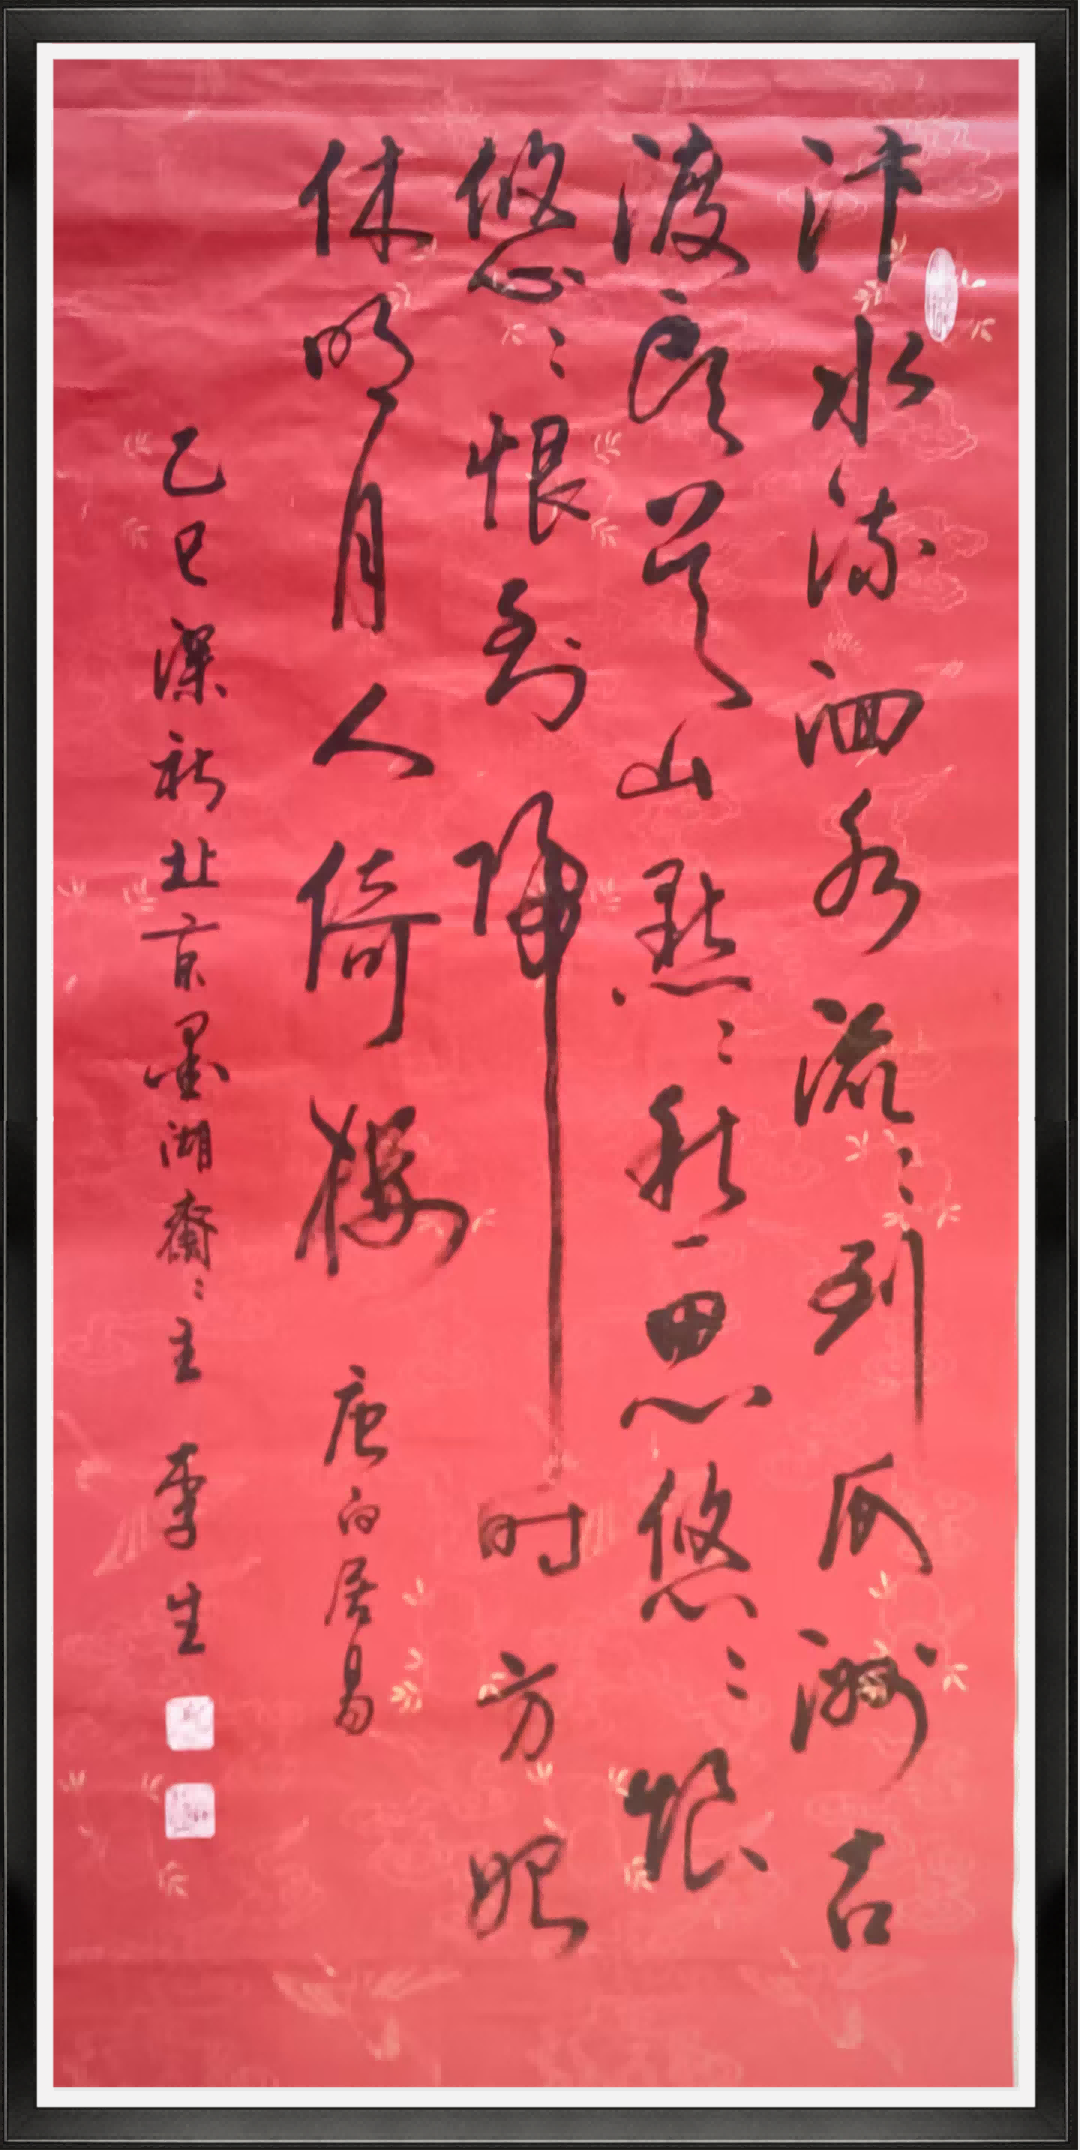 汴水流泗水流〻到瓜洲古
渡頭吴山點〻愁思悠〻恨
悠〻恨到歸时方始
休明月人倚楼 唐白居易
乙巳深秋北京墨湖齋〻主 李生